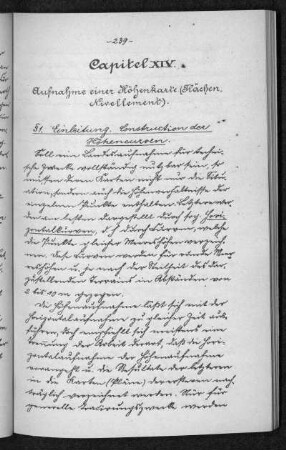 -239-
Capitel XIV.
Aufnahme einer Höhenkarte (Flächen,
Nivellement).
§1. Einleitung. Construction der
Höhencurven.
Soll eine Landesaufnahme für techni-
sche Zwecke vollständig nutzbar sein, so
müssen deren Karten nicht nur die Situ-
ation, sondern auch die Höhenverhältnisse der
einzelnen Punkte enthalten. Letztere wer-
den am besten dargestellt durch sog. Hori-
zontalcurven, d. h. durch Curven, welche
die Punkte gleicher Meereshöhen verzeich-
nen. Diese Curven werden für runde Mee-
reshöhen u. je nach der Steilheit des dar-
zustellenden Terrains in Abständen von
bis 10 m gezogen.
Die Höhenaufnahme läßt sich mit der
Horizontalaufnahme zu gleicher Zeit aus-
führen, doch empfiehlt sich meistens eine
Trennung der Arbeit derart, daß die Hori-
zontalaufnahme der Höhenaufnahme
vorangeht u. die Resultate der letzteren
in die Karten (Pläne) der ersteren nach-
träglich verzeichnet werden. Nur für
generelle Tracirungszwecke werden